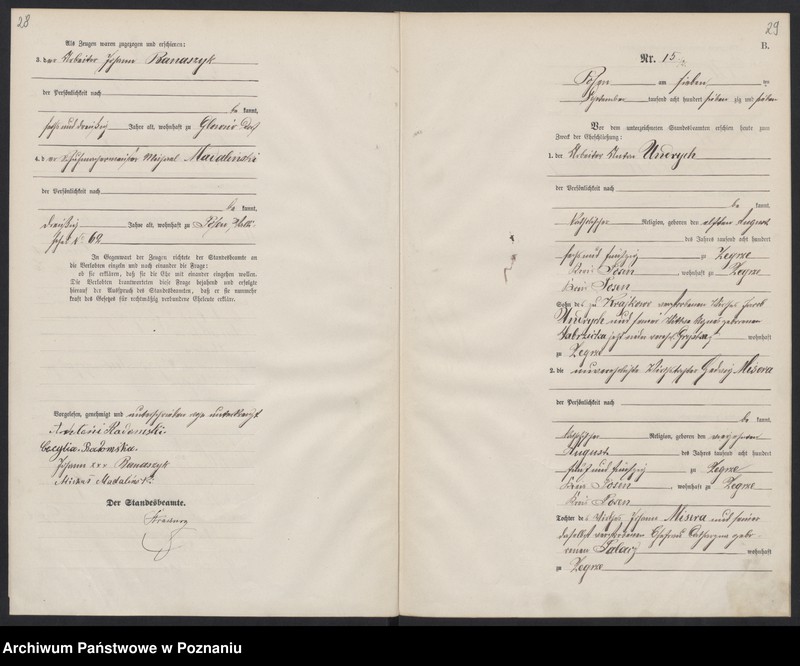 28
Als Zeugen waren zugezogen und erschienen:
3. der Arbeiter Johann Banaszyk
der Persönlichkeit nach
be kannt,
sechs und dreißig Jahre alt, wohnhaft zu Glowno Dorf
4. der Schuhmachermeister Michael Madalinski
der Persönlichkeit nach
be kannt,
dreißig Jahre alt, wohnhaft zu Posen,
No 62
In Gegenwart der Zeugen richtete der Standesbeamte an
die Verlobten einzeln und nach einander die Frage:
ob sie erklären, daß sie die Ehe mit einander eingehen wollen.
Die Verlobten beantworteten diese Frage bejahend und erfolgte
hierauf der Ausspruch des Standesbeamten, daß er sie nunmehr
kraft des Gesetzes für rechtmäßig verbundene Eheleute erkläre.
Vorgelesen, genehmigt und unterschrieben
Radomski
Cecylia Radomska
Johann xxx Banaszyk
Madalinski
Der Standesbeamte.
29
B.
Nr. 15
Posen am sieben ten
September tausend acht hundert sieben zig und sieben
Vor dem unterzeichneten Standesbeamten erschien heute zum
Zweck der Eheschließung:
1. der Arbeiter Anton Undrych
der Persönlichkeit nach
be kannt,
katholischer Religion, geboren den elften August
des Jahres tausend acht hundert
sechs und fünfzig zu Zegrze
Kreis Posen, wohnhaft zu Zegrze
Kreis Posen
Sohn des zu Krajkowo verstorbenen Wirths Jacob
Undrych und seiner Wittwe Agnes geborenen
wohnhaft
zu Zegrze
2. die unverehelichte Wirthstochter Hedwig Misera
der Persönlichkeit nach
be kannt,
katholischer Religion, geboren den
August des Jahres tausend acht hundert
fünf und fünfzig zu Zegrze
Kreis Posen, wohnhaft zu Zegrze
Kreis Posen
Tochter des Wirths Johann Misera und seiner
daselbst verstorbenen Ehefrau Catharina gebo-
renen Palacz wohnhaft
zu Zegrze
Archiwum Państwowe w Poznaniu